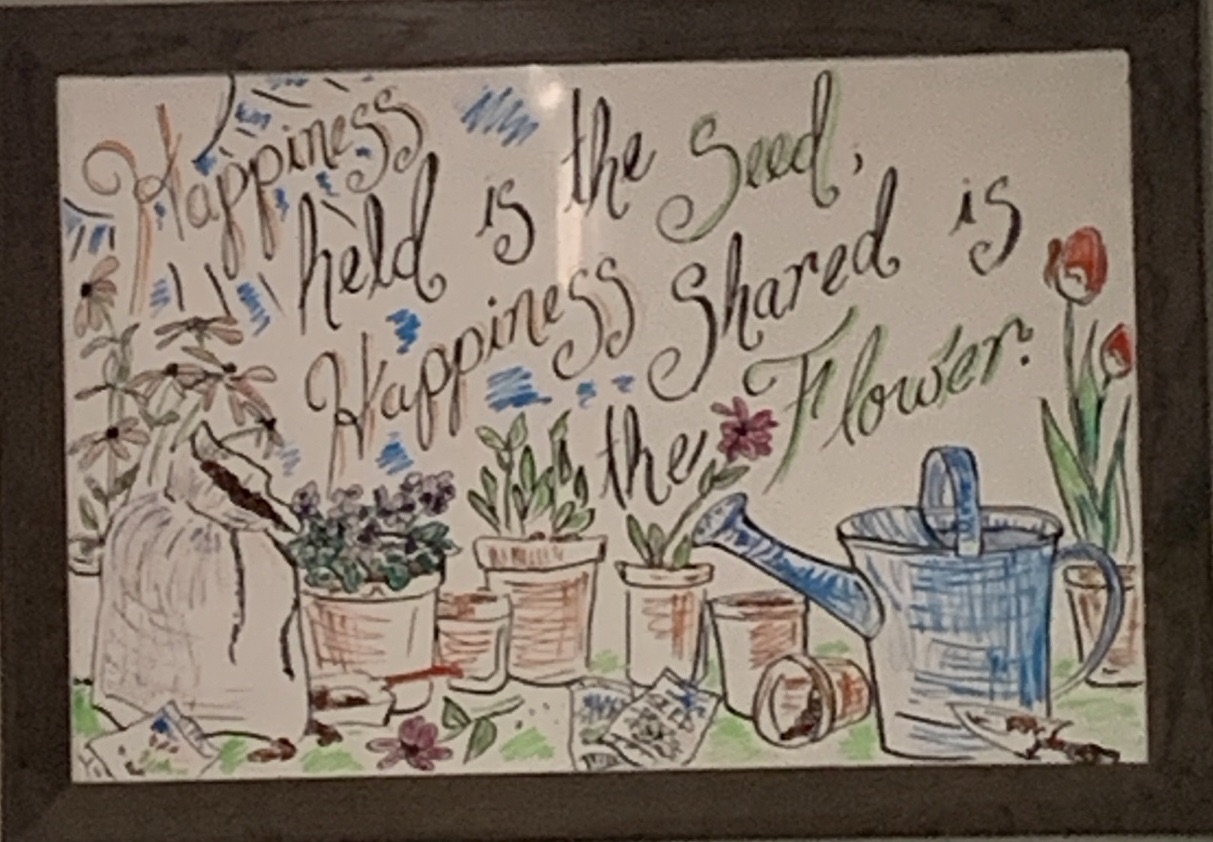 Happiness
held is the Seed,
Happiness Shared is
the Flower.